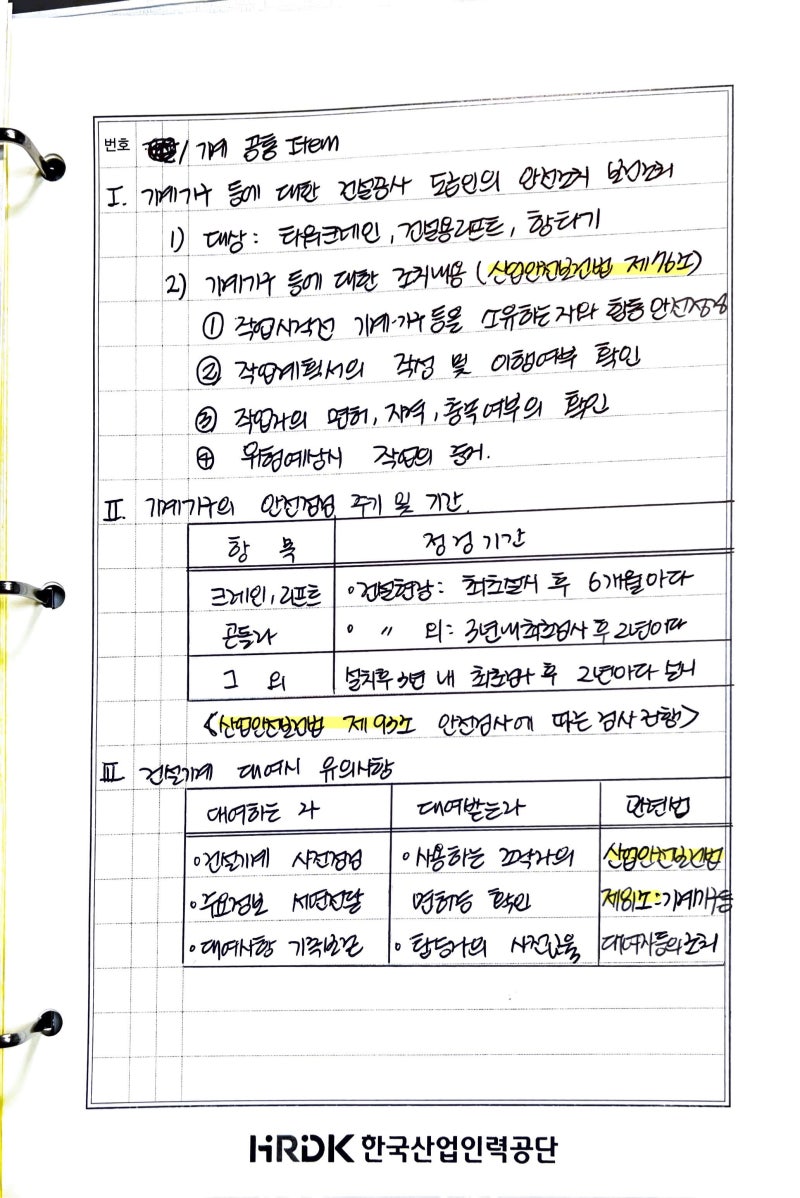 번호 / 기계 공통 Item
I. 기계기구 등에 대한 건설공사 도급인의 안전조치 보건조치
1) 대상 : 타워크레인, 건설용리프트, 항타기
2) 기계기구 등에 대한 조치내용 (산업안전보건법 제76조)
① 작업시작전 기계·기구등을 소유하는자와 합동안전점검
② 작업계획서의 작성 및 이행여부 확인
③ 작업자의 면허, 자격, 충족여부의 확인
④ 위험예상시 작업의 중지.
II. 기계기구의 안전점검 주기 및 기간
항 목 점검기간
크레인, 리프트 ∘건설현장: 최초설치 후 6개월마다
곤돌라 ∘ 〃 외: 3년내최초검사 후 2년마다
그 외 설치후 3년 내 최초검사 후 2년마다 실시
<산업안전보건법 제93조 안전검사에 따른 검사>
III. 건설기계 대여시 유의사항
대여하는 자 대여받는자 관련법
∘건설기계 사전점검 ∘사용하는 조작자의 산업안전보건법
∘주요정보 서면전달 면허등 확인 제81조:기계기구등
∘대여사항 기록보존 ∘탑승자의 대여자등의조치
HRDK 한국산업인력공단